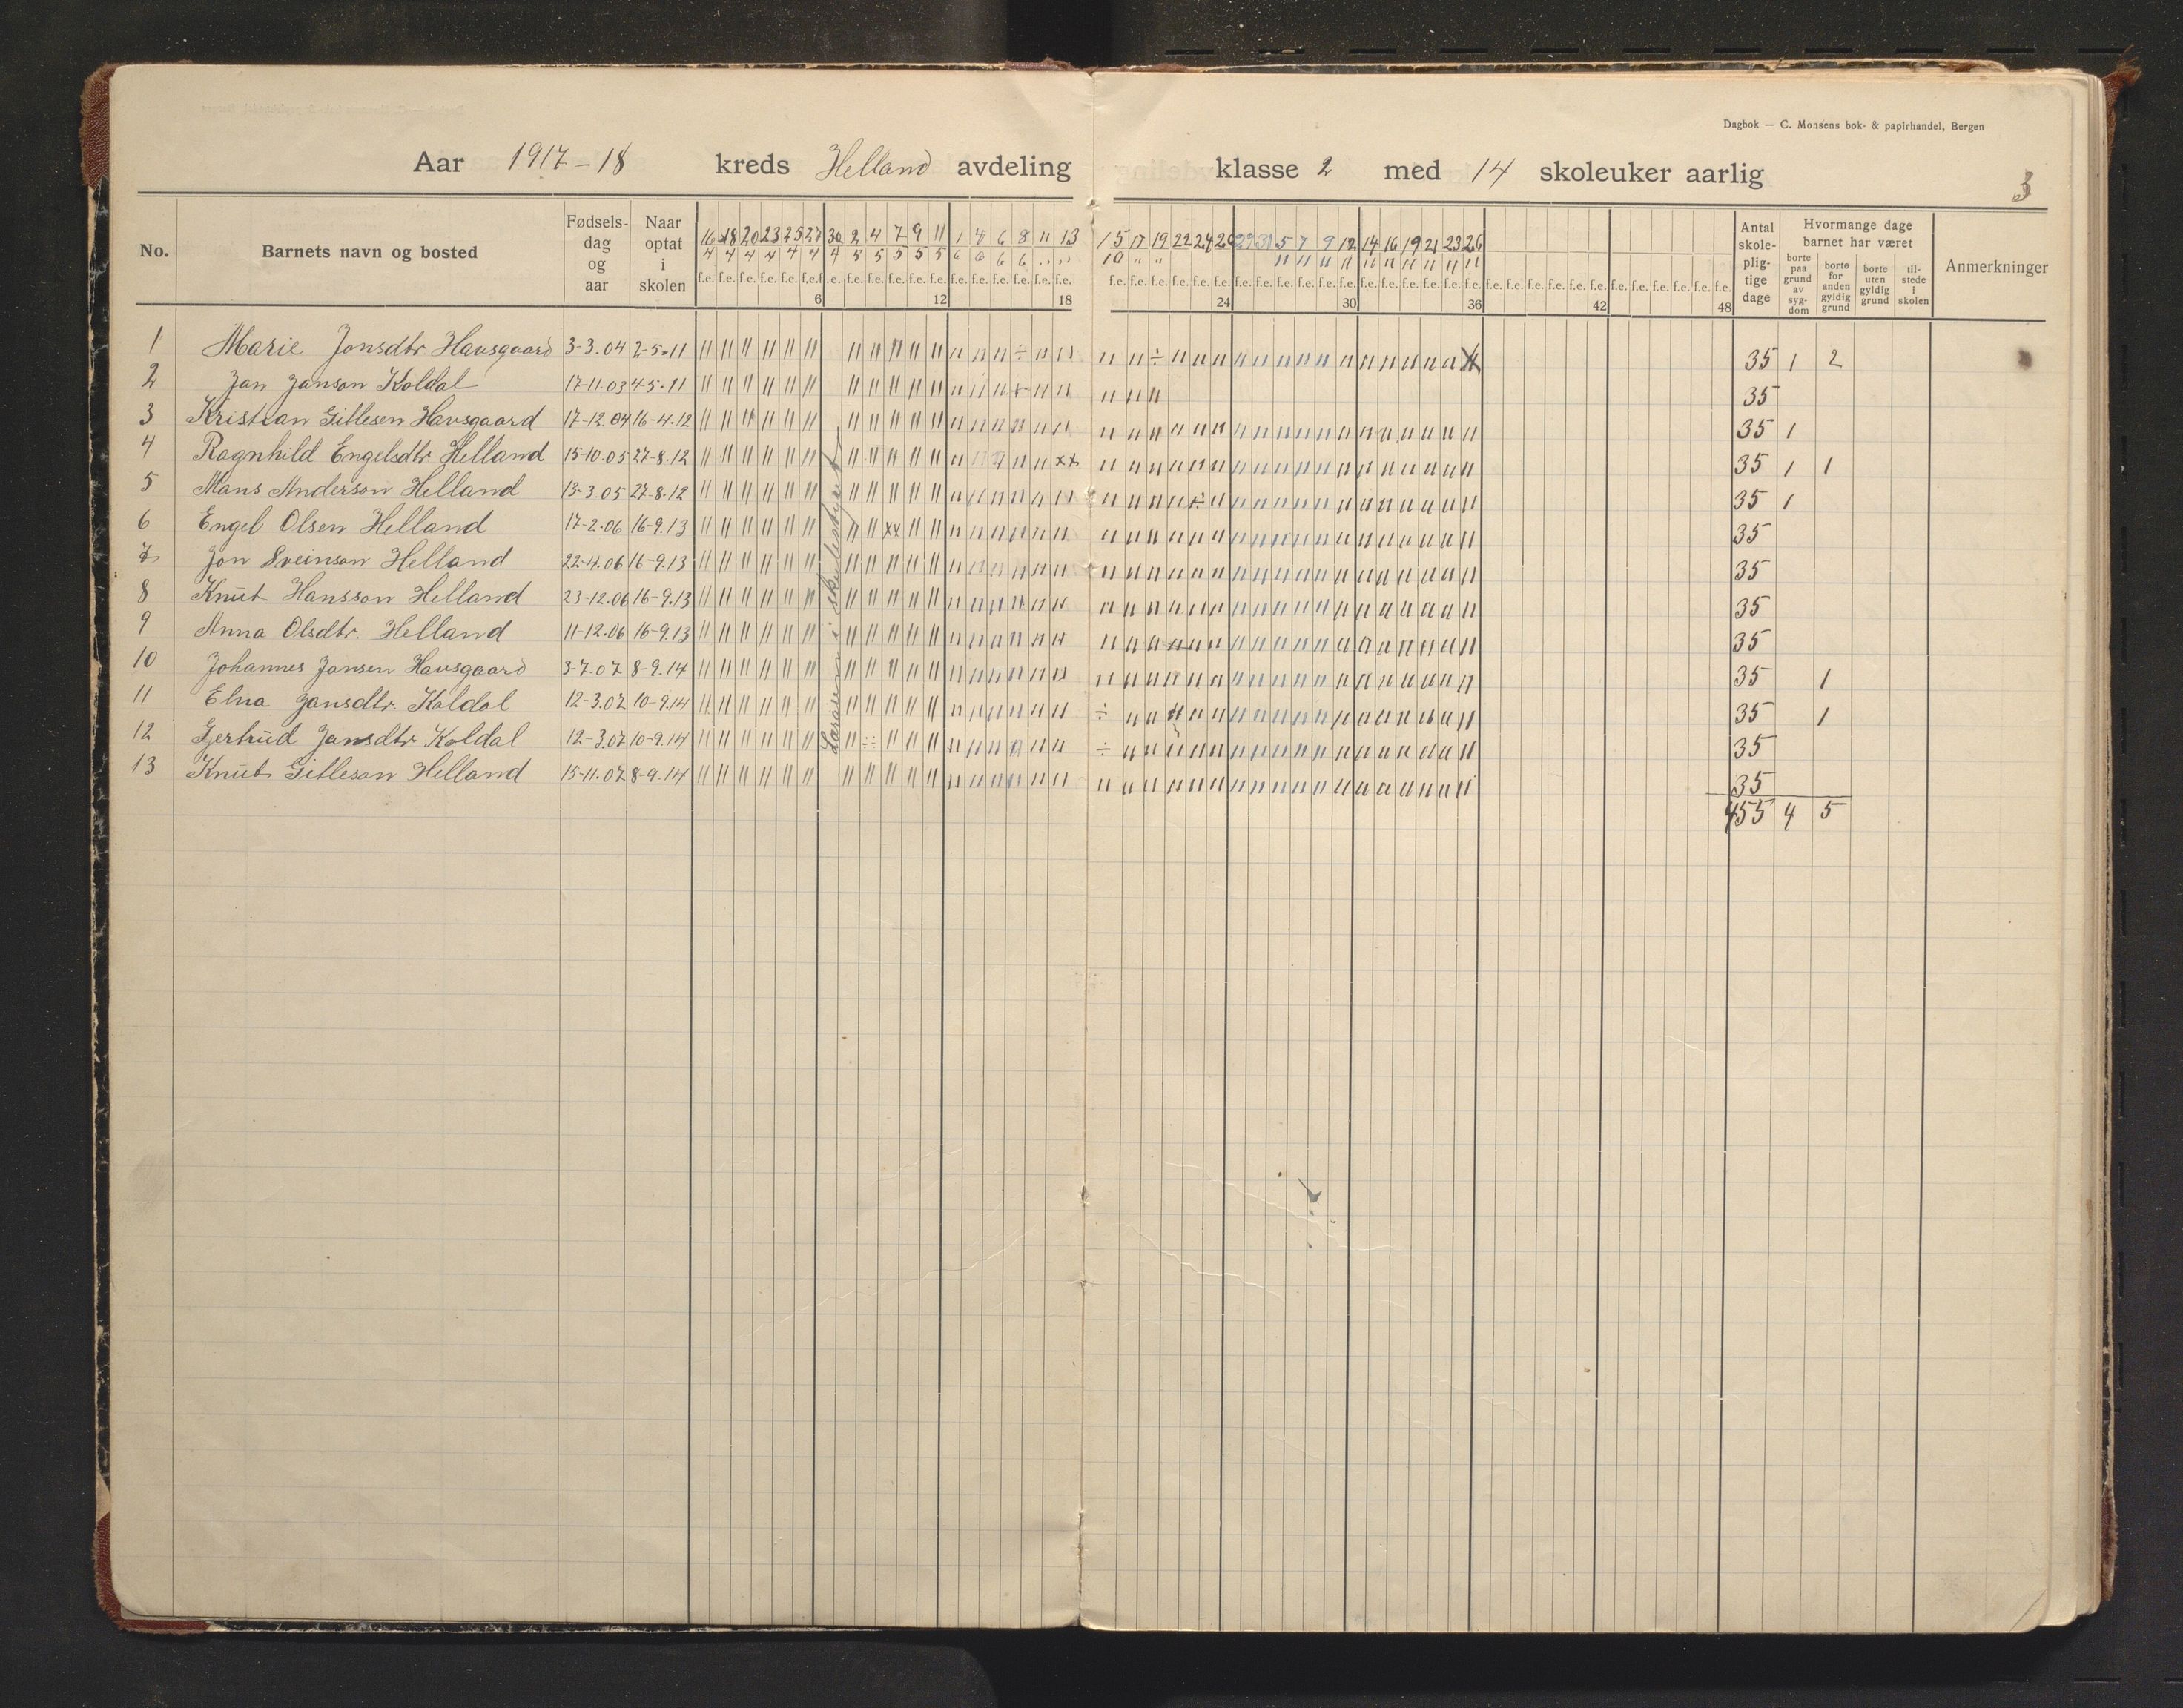 Dagbok — C. Monsens bok- & papirhandel, Bergen
Aar 1917-18 kreds Helland avdeling klasse 2 med 14 skoleuker aarlig
3
No. Barnets navn og bosted Fødselsdag og aar Naar optat i skolen Antal skolepligtige dage Hvormange dage barnet har været Anmerkninger
borte paa grund av sygdom borte for anden gyldig grund borte uten gyldig grund tilstede i skolen
16 18 20 23 25 27 30 2 4 7 9 11 1 4 6 8 11 13 15 17 19 22 24 26 29 31 5 7 9 12 14 16 19 21 23 26
4 4 4 4 4 4 4 5 5 5 5 5 6 6 6 6 " " 10 " " 11 11 11 11 11 11 11 11 11 11
6 12 18 24 30 36 42 48
1 Marie Jonsdtr Havsgaard 3-3.04 2-5-11 35 1 2
2 Jan Janson Koldal 17-11.03 4-5-11 35
3 Kristian Gitlesen Havsgaard 17-12.04 16-4.12 35 1
4 Ragnhild Engelsdtr Helland 15-10.05 27-8.12 35 1 1
5 Mans Anderson Helland 13-3.05 27-8.12 35 1
6 Engel Olsen Helland 17-2-06 16-9.13 35
7 Jon Sveinson Helland 22-4.06 16-9.13 35
8 Knut Hansson Helland 23-12.06 16-9.13 35
9 Anna Olsdtr. Helland 11-12.06 16-9.13 35
10 Johannes Jansen Havsgaard 3-7.07 8-9.14 35 1
11 Elna Jansdtr. Koldal 12-3.07 10-9.14 35 1
12 Gertrud Jansdtr Koldal 12-3.07 10-9.14 35
13 Knut Gitleson Helland 15-11.07 8-9.14 35
455 4 5
Læraren i skulestyret